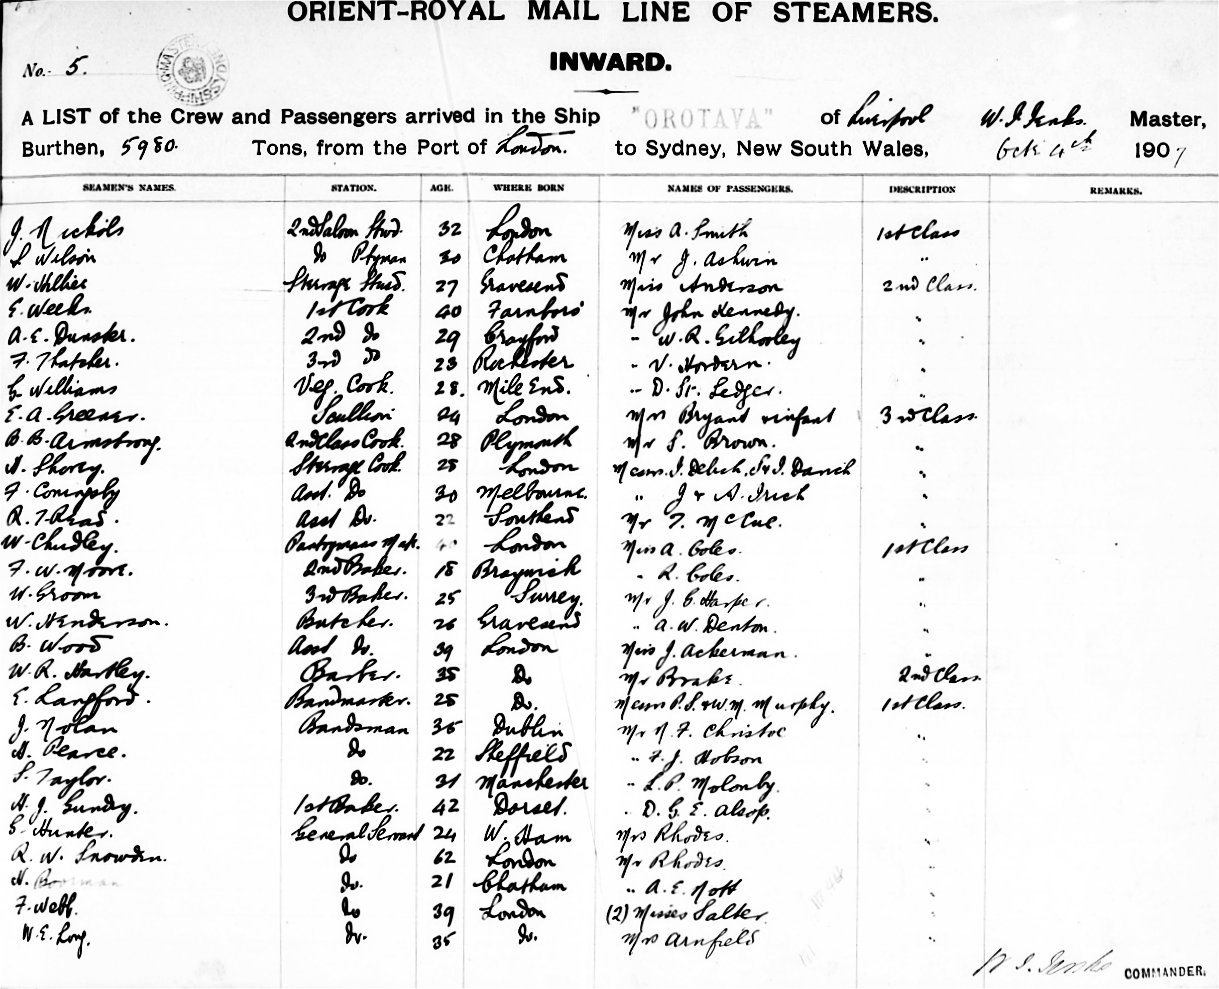 ORIENT-ROYAL MAIL LINE OF STEAMERS.
INWARD.
No. 5.
A LIST of the Crew and Passengers arrived in the Ship "OROTAVA" of Liverpool W. J. Jenks. Master,
Burthen, 5980. Tons, from the Port of London. to Sydney, New South Wales, Oct 4th 1907
SEAMEN'S NAMES. STATION. AGE. WHERE BORN NAMES OF PASSENGERS. DESCRIPTION REMARKS.
J. Nichols 2nd Saloon Stwd. 32 London Miss A. Smith 1st Class
S Wilson do Ptyman 30 Chatham Mr J. Ashwin "
W. Hillier Steerage Stwd. 27 Gravesend Miss Anderson 2nd Class.
E. Weeks. 1st Cook 40 Farnboro' Mr John Kennedy. "
A. E. Dunster. 2nd do 29 Crayford " W. R. Gilhooley "
F. Thatcher. 3rd do 23 Rochester " V. Hordern. "
G Williams Veg. Cook. 28. Mile End. " D. St. Ledger. "
E. A. Greener. Scullion 24 London Mrs Bryant & infant 3rd Class.
B. B. Armstrong. 2nd Class Cook. 28 Plymouth Mr S. Brown. "
H. Shorey. Steerage Cook. 25 London Messrs J. Delich, J. Danich "
F. Coningsby Asst. Do 30 Melbourne. " J & A. Irich "
R. T. Read. Asst Do. 22 Southend Mr T. McCue. "
W. Chudley. Pantryman 40 London Miss A. Coles. 1st Class
F. W. Moore. 2nd Baker. 18 " R. Coles. "
W. Groom 3rd Baker. 25 Surrey. Mr J. C. Harper. "
W. Henderson. Butcher. 26 Gravesend " A. W. Denton. "
B. Wood Asst do. 39 London Miss J. Ackerman. "
W. R. Hartley. Barber. 35 Do Mr Brake. 2nd Class
E. Langford. Bandmaster. 25 Do. Messrs P. S. & W. M. Murphy. 1st Class.
J. Nolan Bandsman 35 Dublin Mr N. F. Christoe "
H. Pearce. do 22 Sheffield " F. J. Hobson "
S. Taylor. do. 31 Manchester " L. P. Molonby. "
H. J. Gundry. 1st Baker. 42 Dorset. " D. G. E. Alsop. "
G. Hunter. General Servant 24 W. Ham Mrs Rhodes. "
R. W. Snowden. do 62 London Mr Rhodes. "
H. Boorman do. 21 Chatham " A. E. Nott "
F. Webb. do 39 London (2) Misses Salter "
W. E. Long. do. 35 do. Mrs Arnfield "
W. J. Jenks COMMANDER.